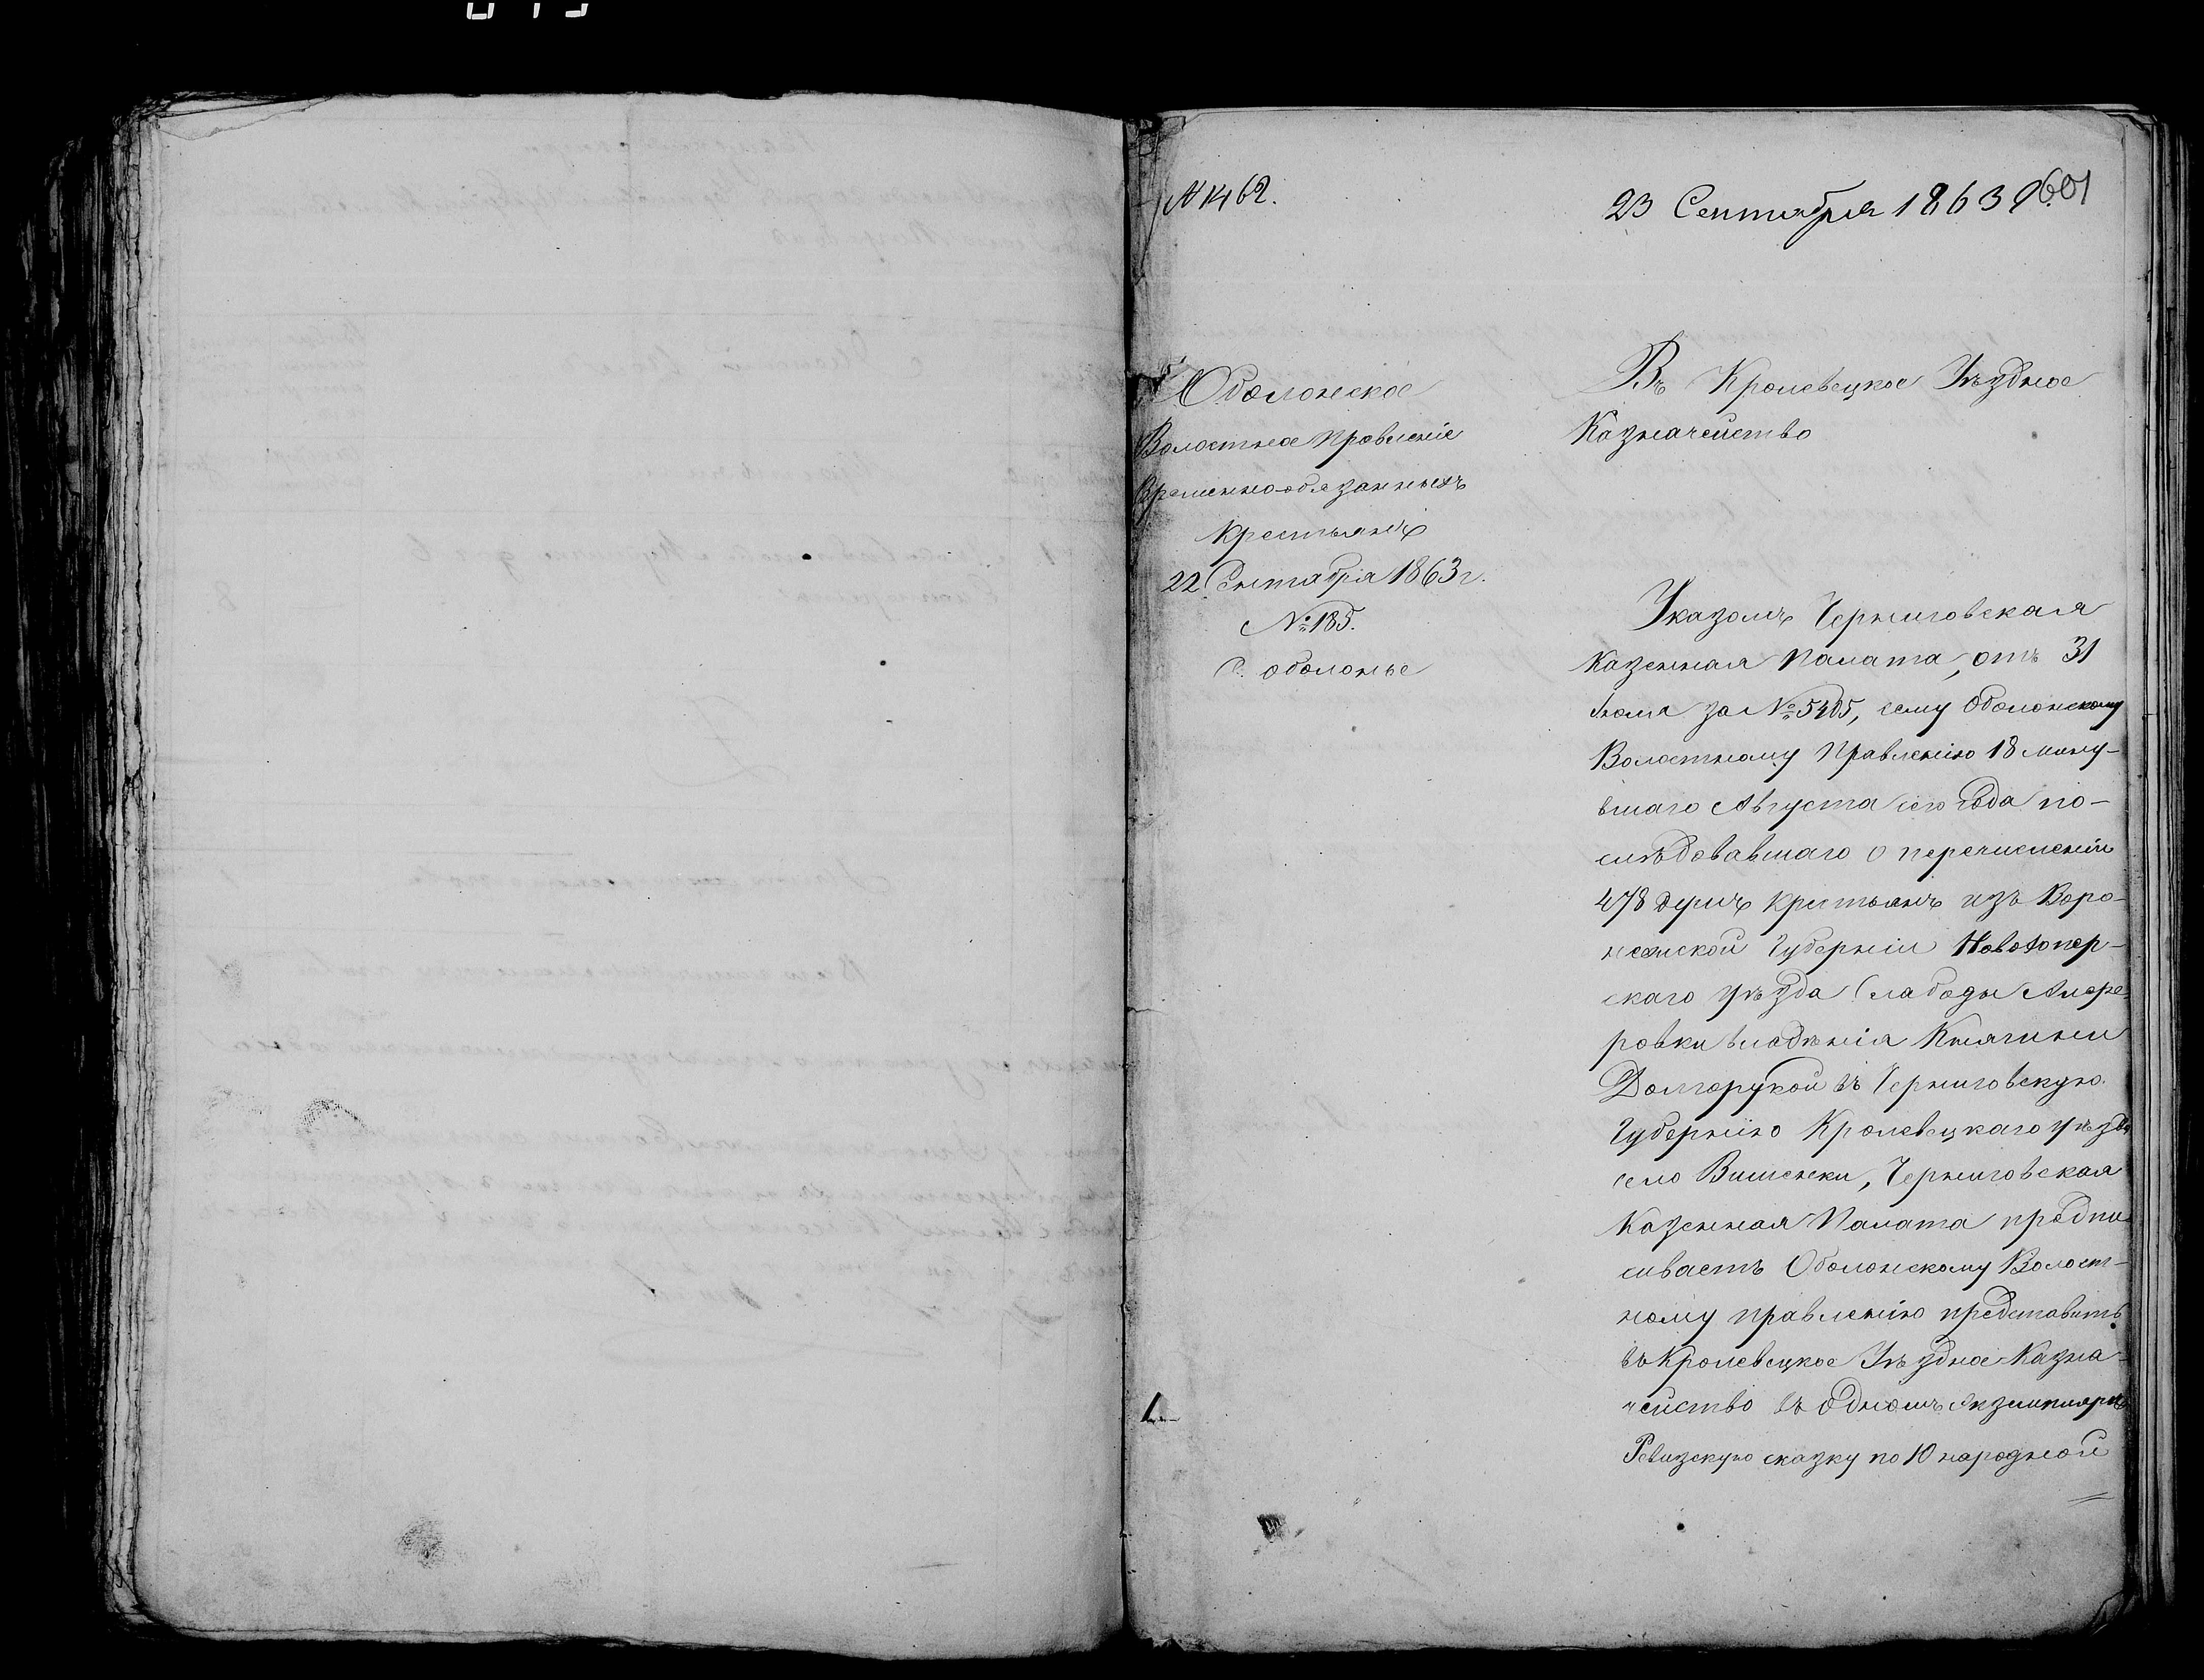 N 1462.
23 Сентября 1863 г. 601
Оболонское
Волостное Правленіе
Временно-обязанныхъ
Крестьянъ
22 Сентября 1863 г.
№ 185.
С. Оболонье
Въ Кролевецкое Уѣздное
Казначейство
Указомъ Черниговская
Казенная Палата, отъ 31
Іюля за № 5405, сему Оболонскому
Волостному Правленію 18 мину-
вшаго Августа сего года по-
слѣдовавшаго о перечисленіи
478 душъ крестьянъ изъ Воро-
нежской Губерніи Новохопер-
скаго уѣзда Слабоды
ровки владѣнія Княгини
Долгорукой въ Черниговскую
Губернію Кролевецкаго уѣзда
село Вишенки, Черниговская
Казенная Палата предпи-
сываетъ Оболонскому Волост-
ному правленію представить
въ Кролевецкое Уѣздное Казна-
чейство въ одномъ экземплярѣ
Ревизскую сказку по 10 народной